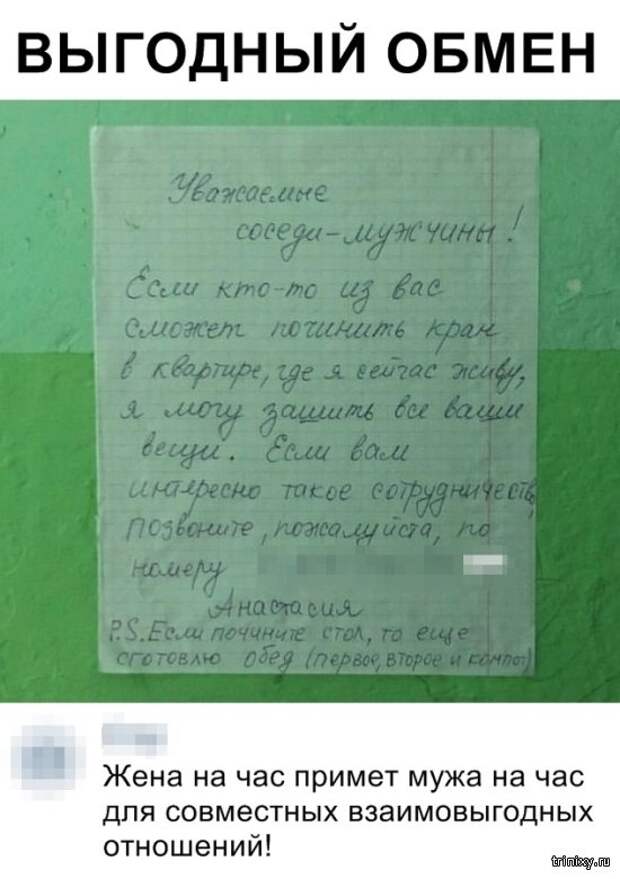 ВЫГОДНЫЙ ОБМЕН
Уважаемые
соседи-мужчины!
Если кто-то из вас
сможет починить кран
в квартире, где я сейчас живу,
я могу зашить все ваши
вещи. Если вам
интересно такое сотрудничество,
позвоните, пожалуйста, по
номеру
Анастасия
P.S. Если почините стол, то еще
сготовлю обед (первое, второе и компот)
Жена на час примет мужа на час
для совместных взаимовыгодных
отношений!
trinixy.ru